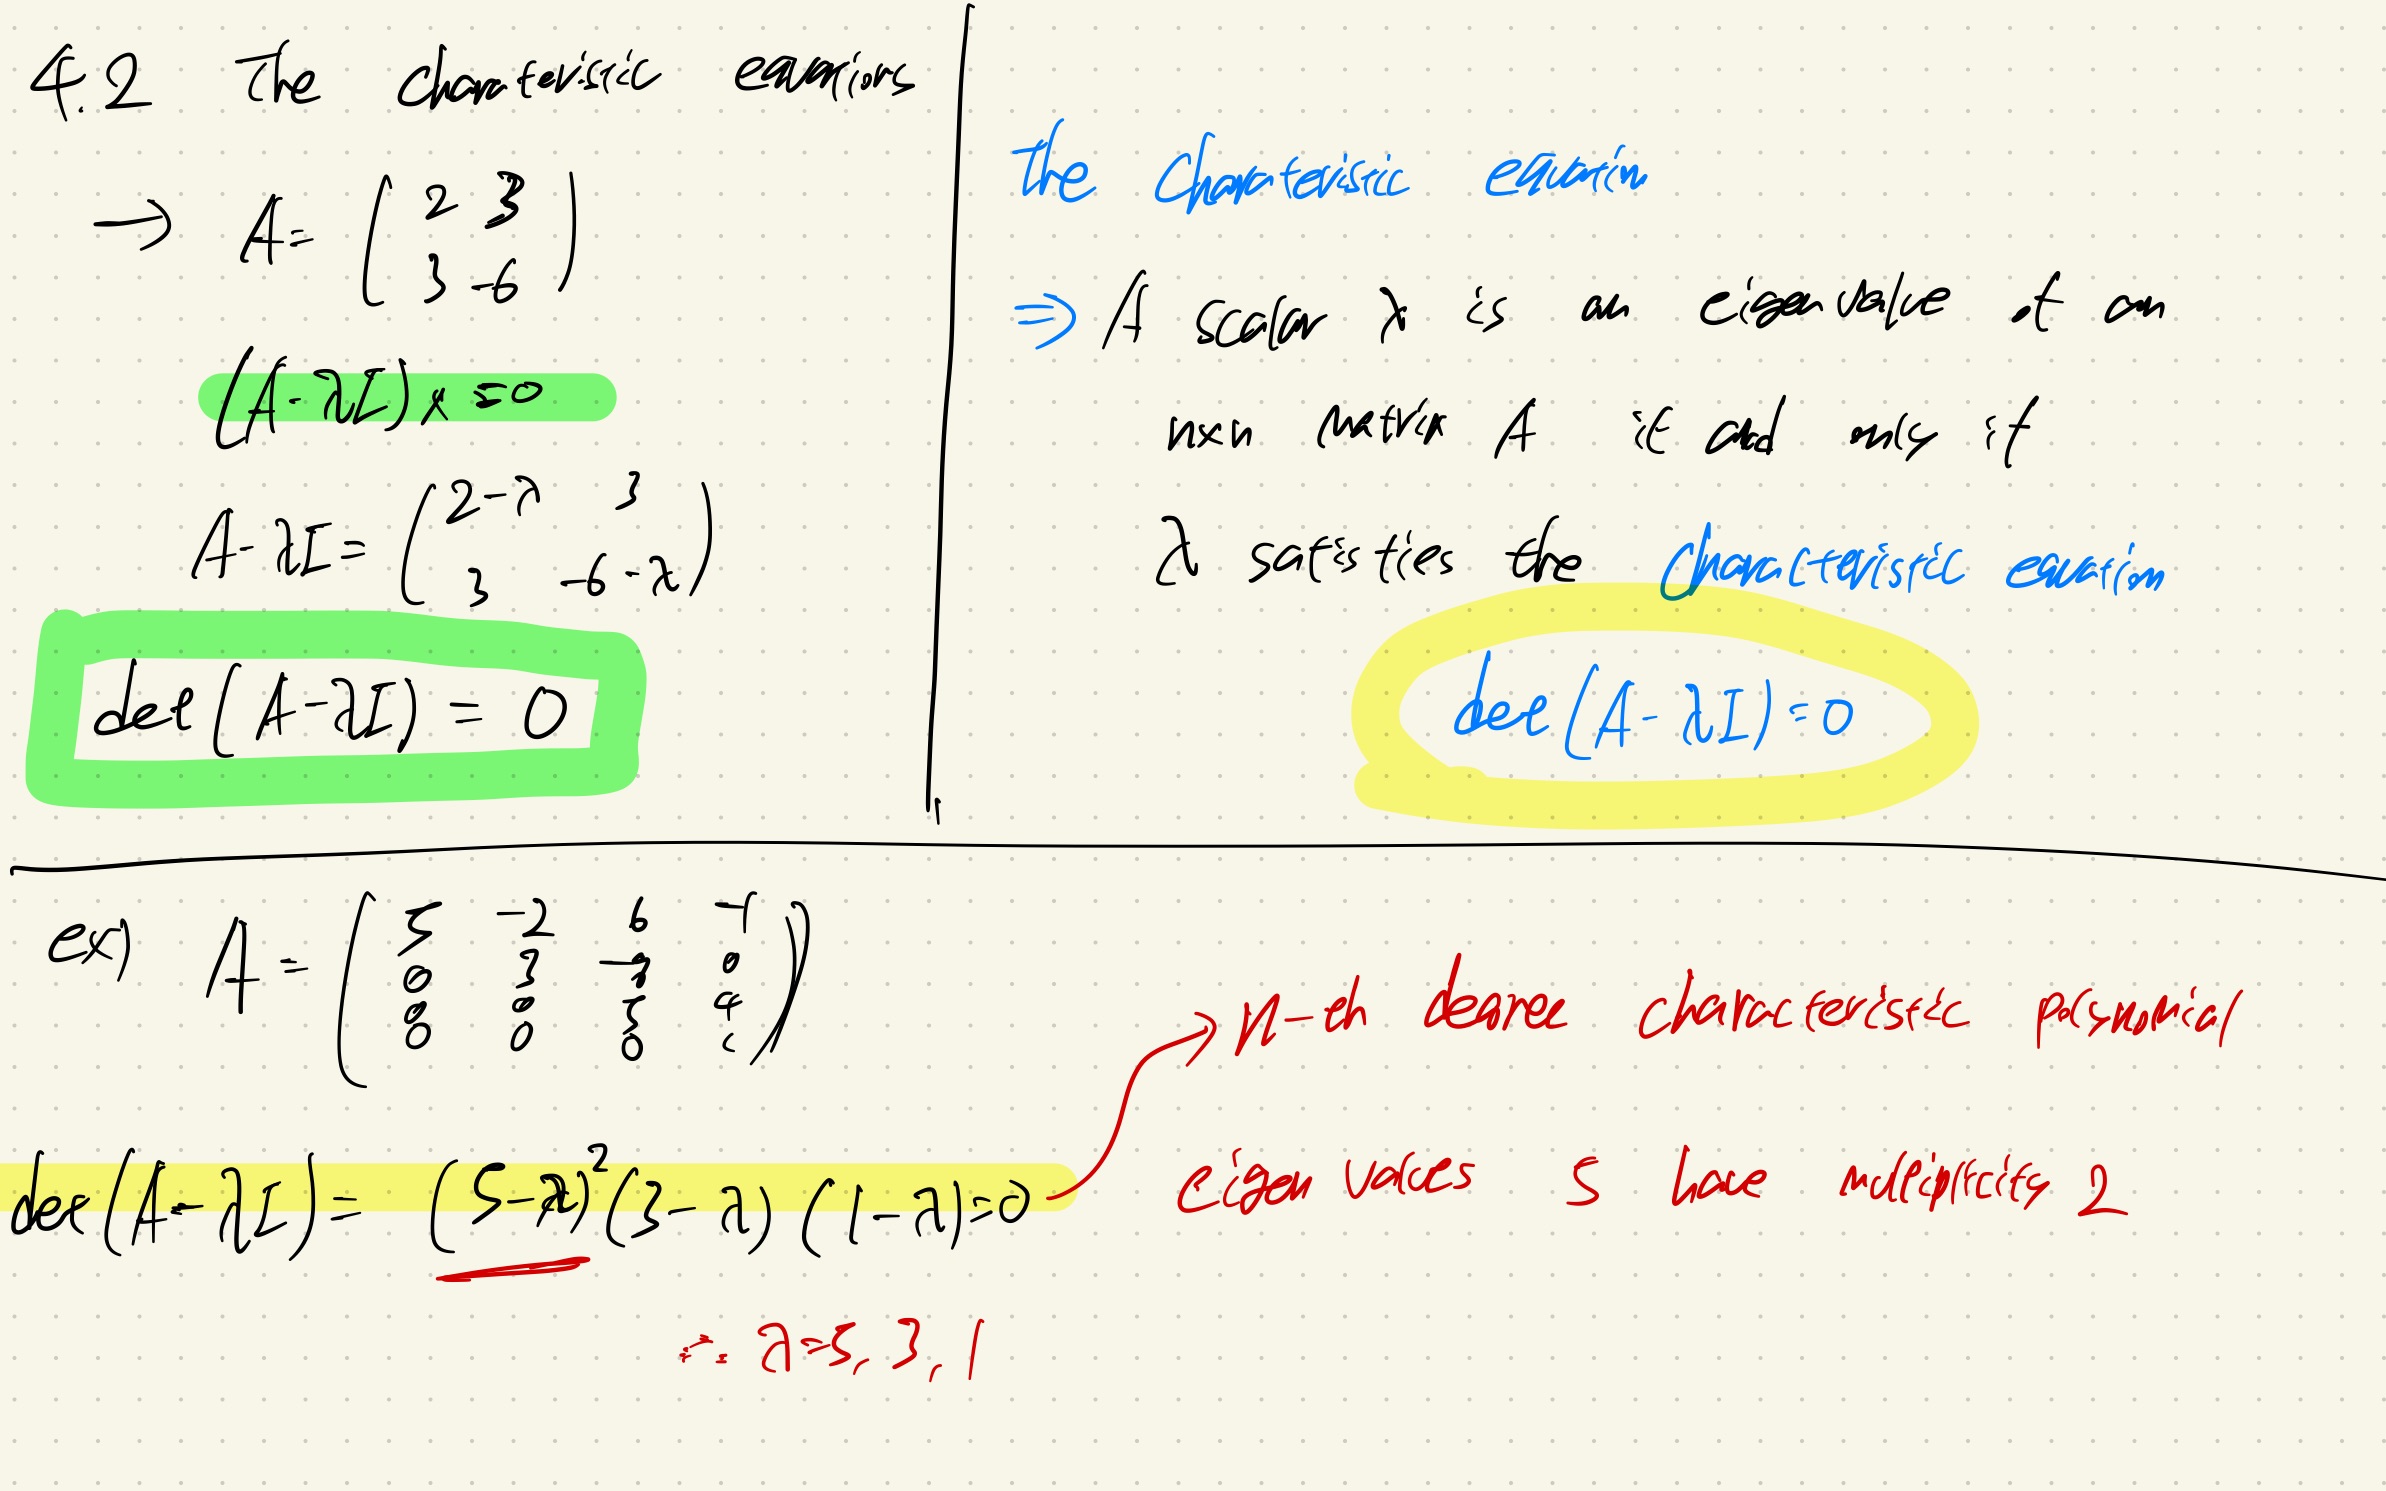 4.2 The charateristic equations
→ A = ( 2 3
3 -6 )
(A - λI) x = 0
A - λI = ( 2-λ 3
3 -6-λ )
det (A - λI) = 0
The Charateristic equation
⇒ A scalar λ is an eigenvalue of an
nxn matrix A if and only if
λ satisfies the Characteristic equation
det (A - λI) = 0
ex) A = ( 5 -2 6 -1
0 3 -8 0
0 0 5 4
0 0 0 1 )
det (A - λI) = (5-λ)² (3-λ) (1-λ) = 0
∴ λ = 5, 3, 1
n-th degree characteristic polynomial
eigen values 5 have multiplicity 2